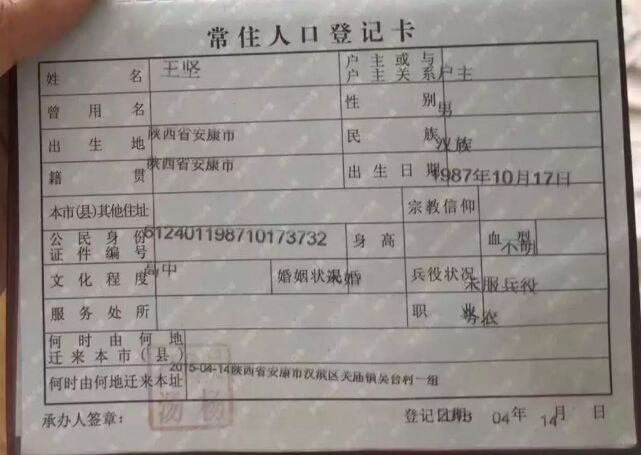 常住人口登记卡
姓名 王坚 户主或与户主关系 户主
曾用名 性别 男
出生地 陕西省安康市 民族 汉族
籍贯 陕西省安康市 出生日期 1987年10月17日
本市(县)其他住址 宗教信仰
公民身份证件编号 612401198710173732 身高 血型 不明
文化程度 高中 婚姻状况 未婚 兵役状况 未服兵役
服务处所 职业 务农
何时由何地迁来本市(县)
何时由何地迁来本址 2015-04-14陕西省安康市汉滨区关庙镇吴台村一组
承办人签章: 汤杨 登记日期: 04年 14月 日